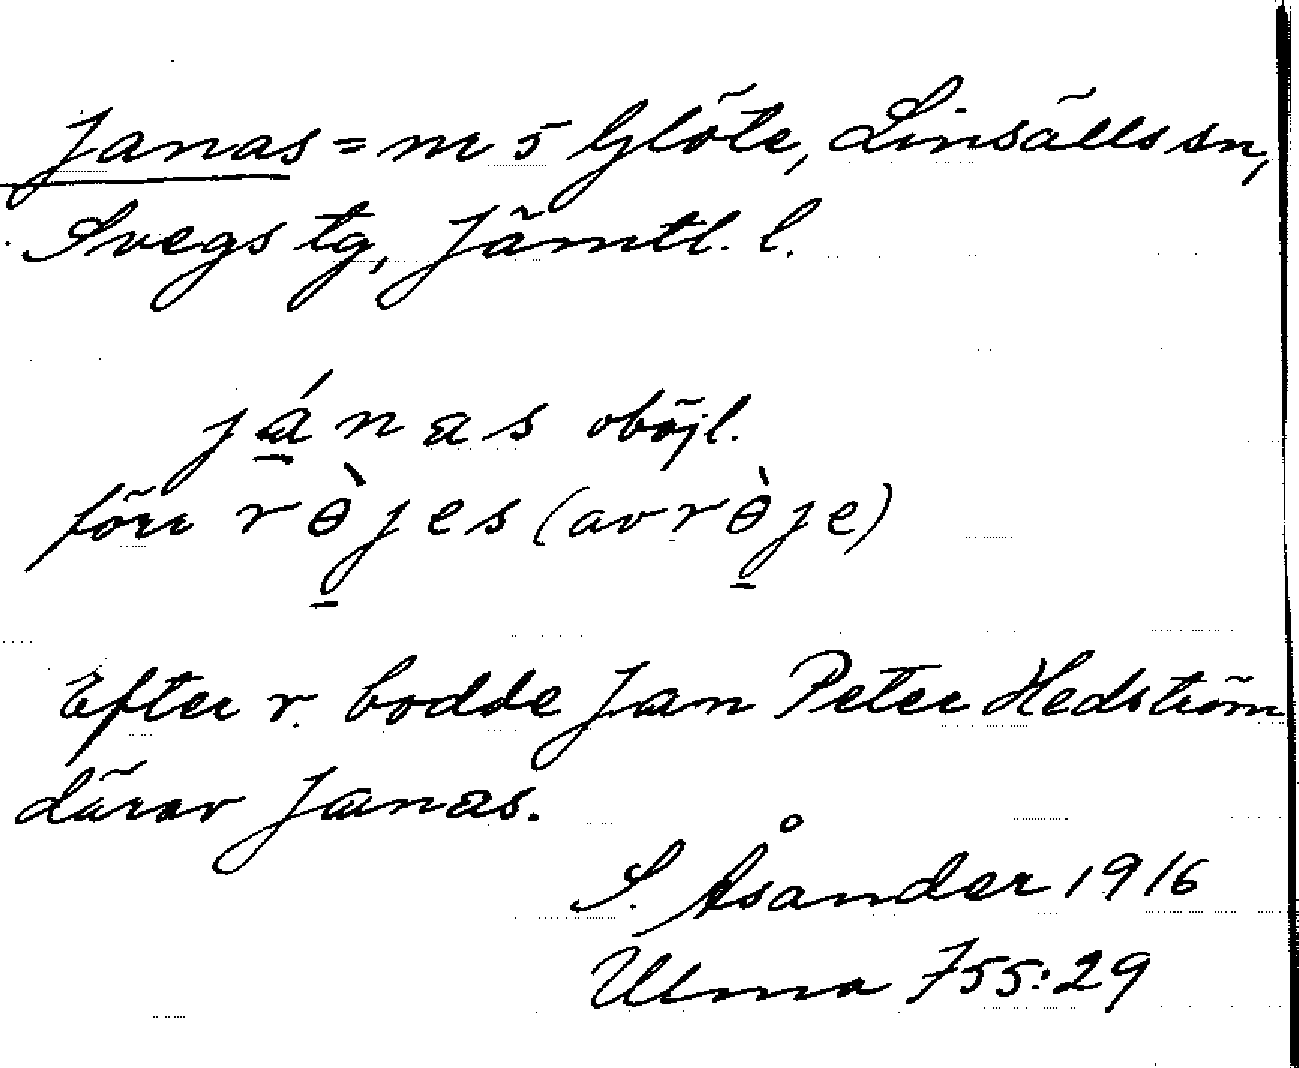 Janas = nr 5 Glöte, Linsälls sn,
Svegs tg, Jämtl. l.
jánas oböjl.
före rɵ̀jes (av rɵ̀je)
Efter r. bodde Jan Peter Hedström
därav Janas.
S. Åsander 1916
Ulma 755:29